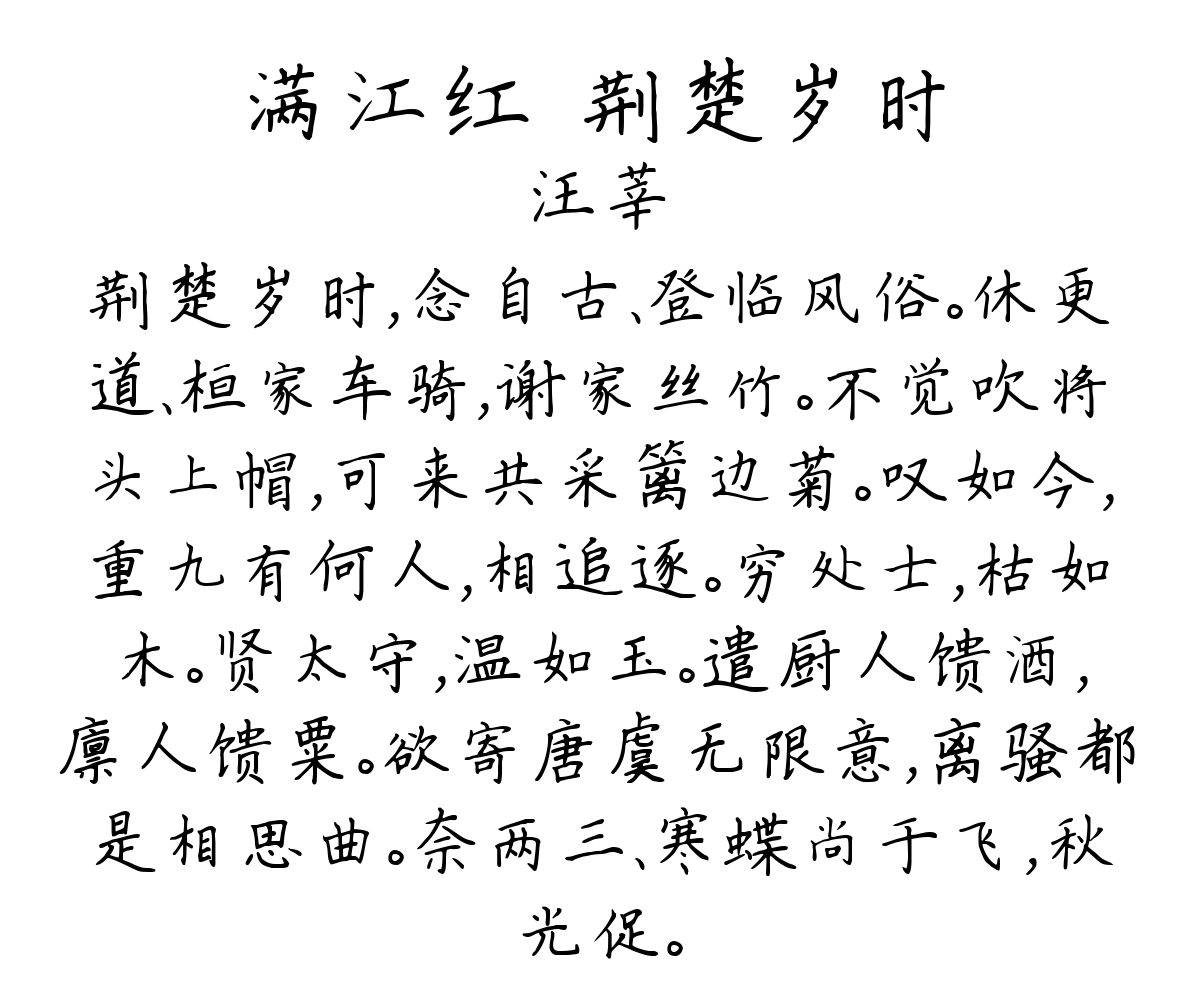 满江红 荆楚岁时
汪莘
荆楚岁时,念自古、登临风俗。休更
道、桓家车骑,谢家丝竹。不觉吹将
头上帽,可来共采篱边菊。叹如今,
重九有何人,相追逐。穷处士,枯如
木。贤太守,温如玉。遣厨人馈酒,
廪人馈粟。欲寄唐虞无限意,离骚都
是相思曲。奈两三、寒蝶尚于飞,秋
光促。